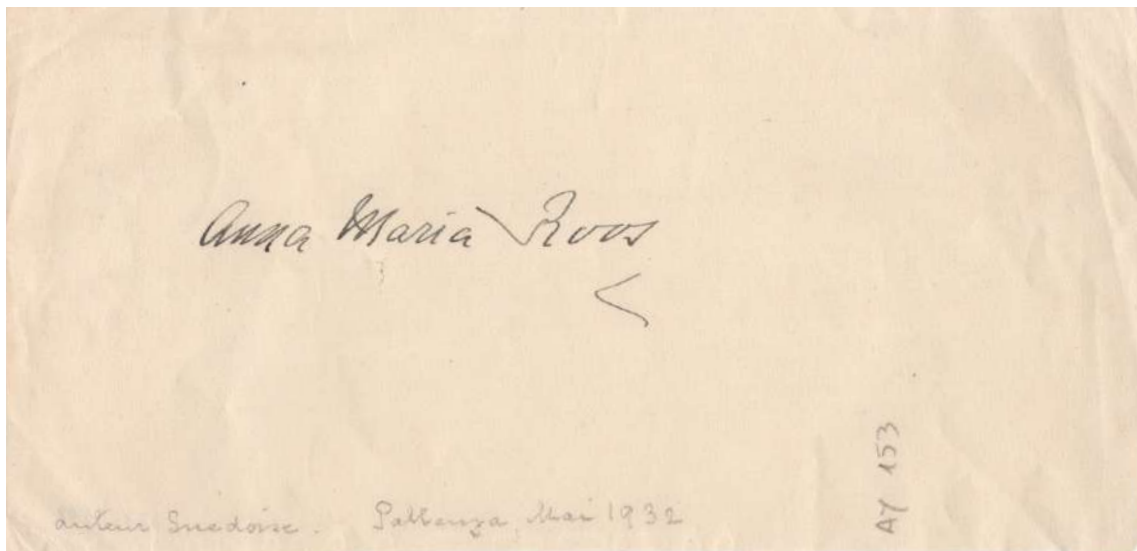 Anna Maria Roos
auteur Suedoise. Pallanza, Mai 1932
AY 153